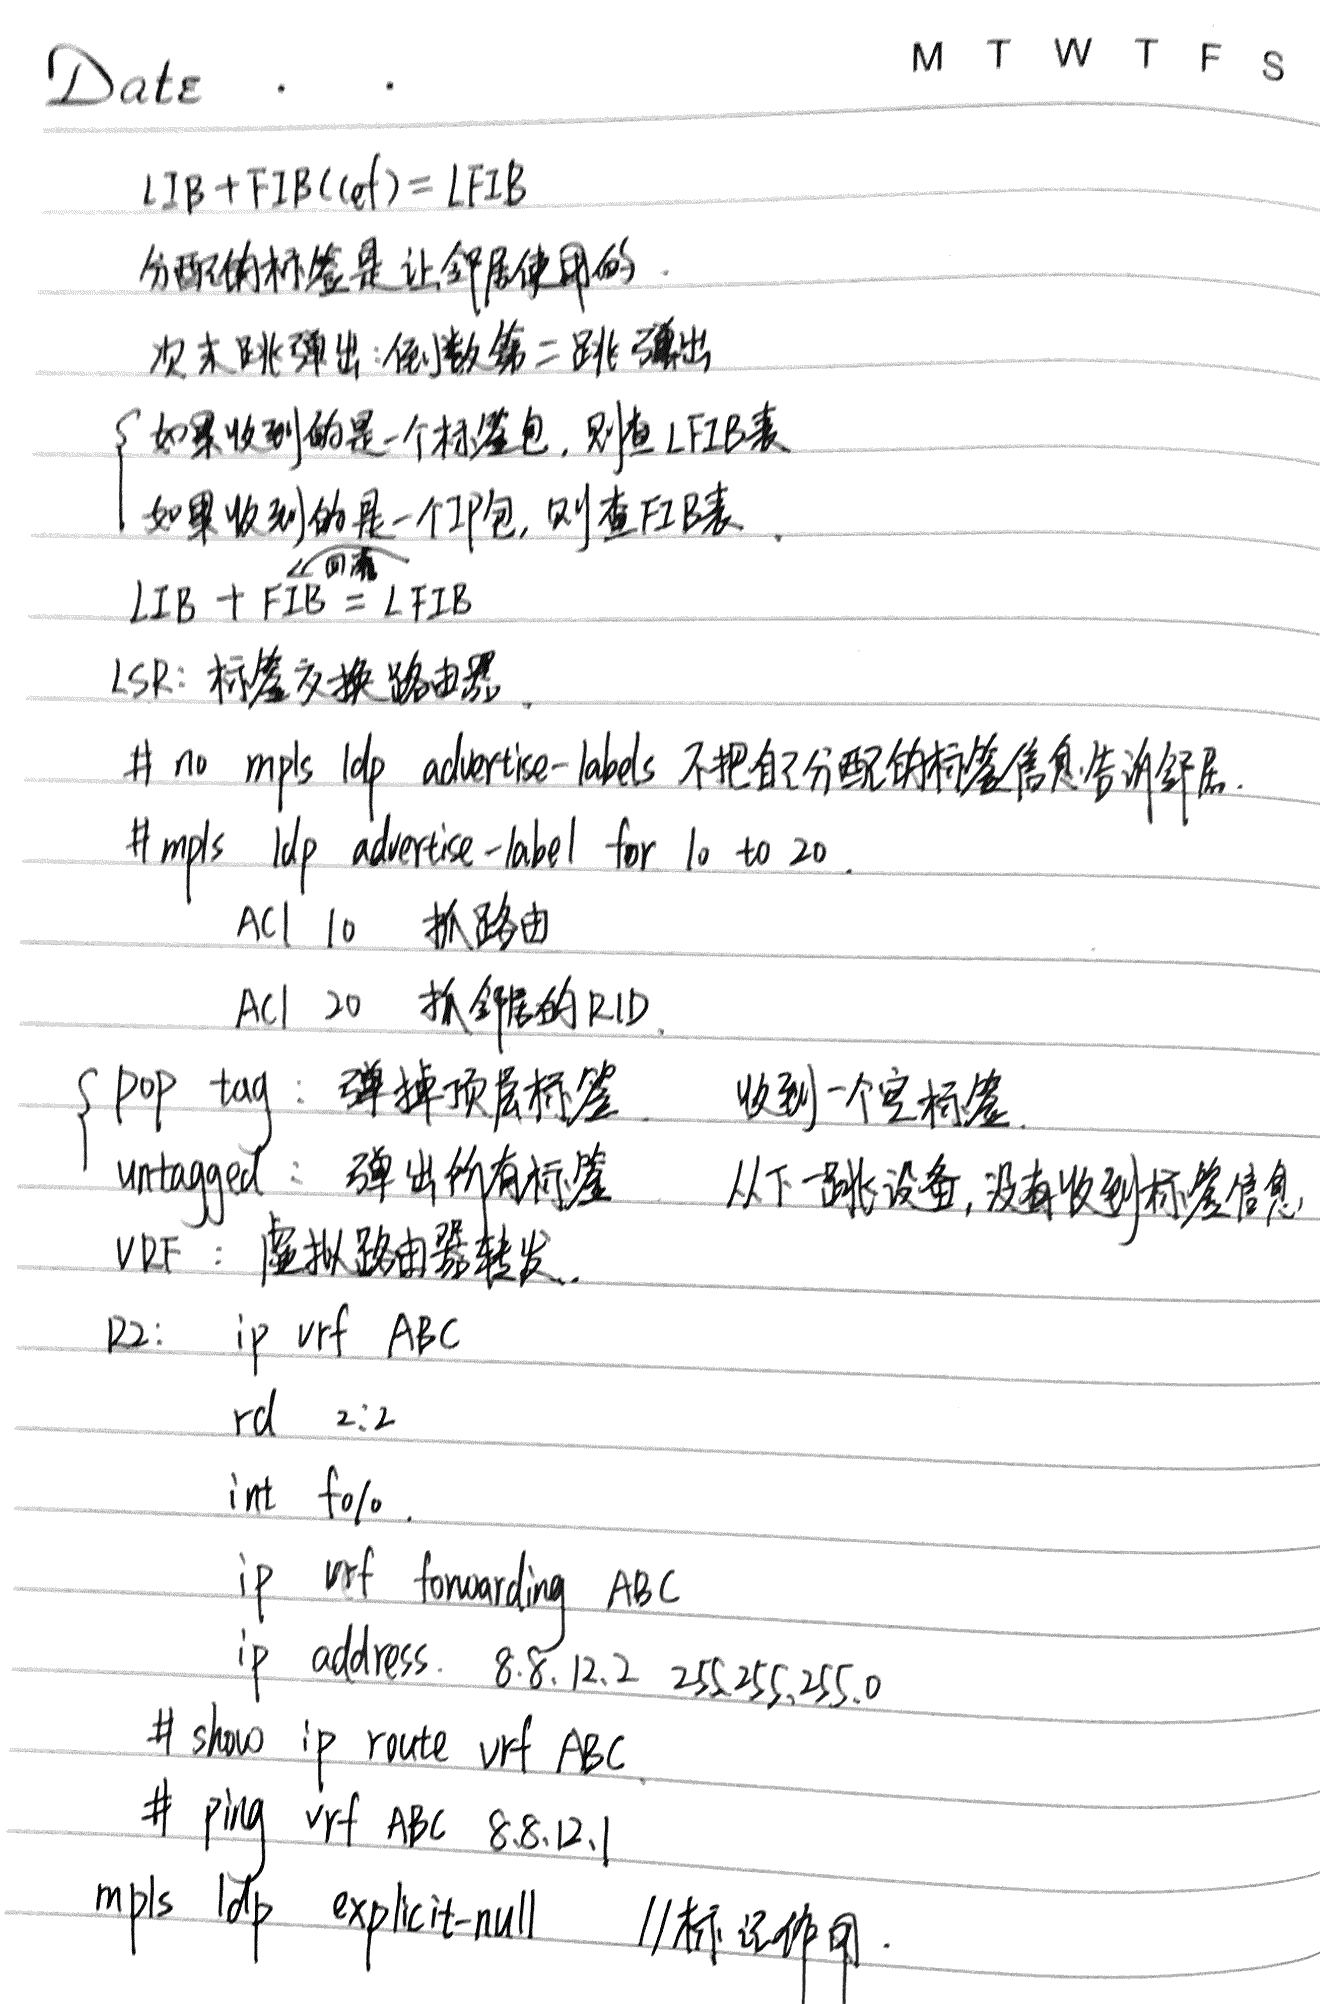 Date . . M T W T F S
LIB+FIB(cef)=LFIB
分配的标签是让邻居使用的.
次末跳弹出:倒数第二跳弹出
如果收到的是一个标签包,则查LFIB表
如果收到的是一个IP包,则查FIB表.
回流
LIB + FIB = LFIB
LSR: 标签交换路由器.
# no mpls ldp advertise-labels 不把自己分配的标签信息告诉邻居.
#mpls ldp advertise-label for 10 to 20.
ACl 10 抓路由
ACl 20 抓邻居的RID.
pop tag: 弹掉顶层标签. 收到一个空标签.
untagged: 弹出所有标签 从下一跳设备,没有收到标签信息.
VRF: 虚拟路由器转发.
R2: ip vrf ABC
rd 2:2
int f0/0.
ip vrf forwarding ABC
ip address. 8.8.12.2 255.255.255.0
# show ip route vrf ABC.
# ping vrf ABC 8.8.12.1
mpls ldp explicit-null //标记作用.